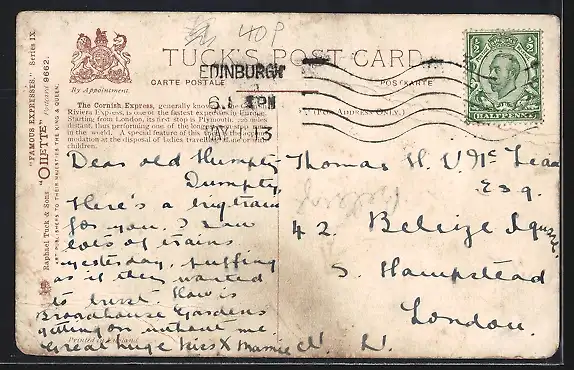 40P
TUCK'S POST CARD
CARTE POSTALE
POSTKARTE
By Appointment
"FAMOUS EXPRESSES." Series IX.
"OILETTE" Postcard 9662.
Raphael Tuck & Sons
ART PUBLISHERS TO THEIR MAJESTIES THE KING & QUEEN.
EDINBURGH
13
HALFPENNY
The Cornish Express, generally
Riviera Express, is one of the fastest expresses in Europe.
Starting from London, its first stop is Plymouth, miles
distant, thus performing one of the longest stop
in the world. A special feature of this
at the disposal of ladies travelling alone or
children.
(For Address Only.)
Dear old Humpty
Dumpty,
Here's a big train
for you. I saw
lots of trains
yesterday, puffing
as if they wanted
to burst. How is
Broadhouse Gardens
getting on without me.
Great huge kiss X Mamie
Thomas H.
Esq.
42 Belsize Square
S. Hampstead
London.
N.W.
Printed in England